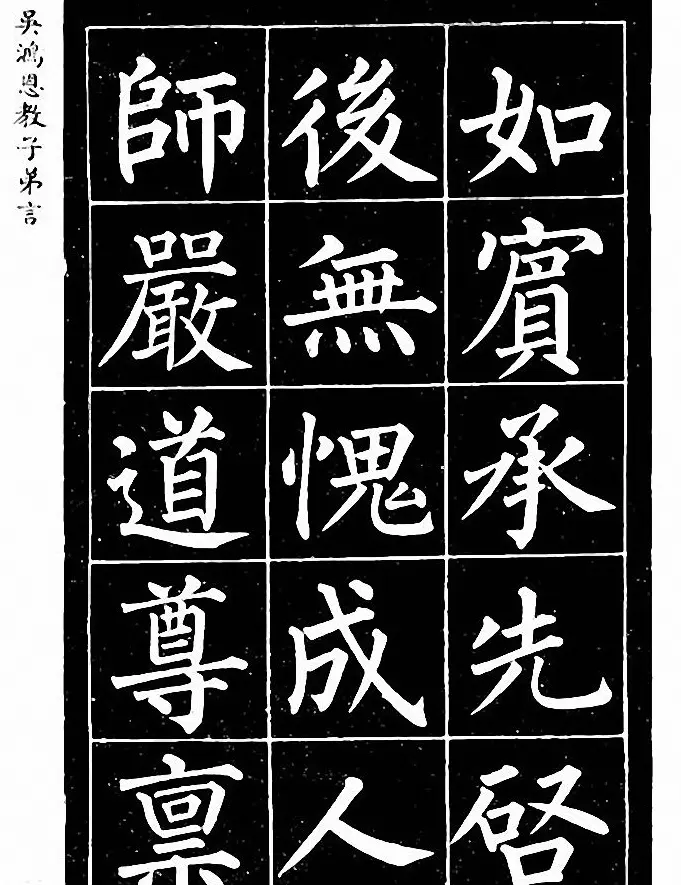 如賓承先啓
後無愧成人
師嚴道尊稟
吳鴻恩教子弟言